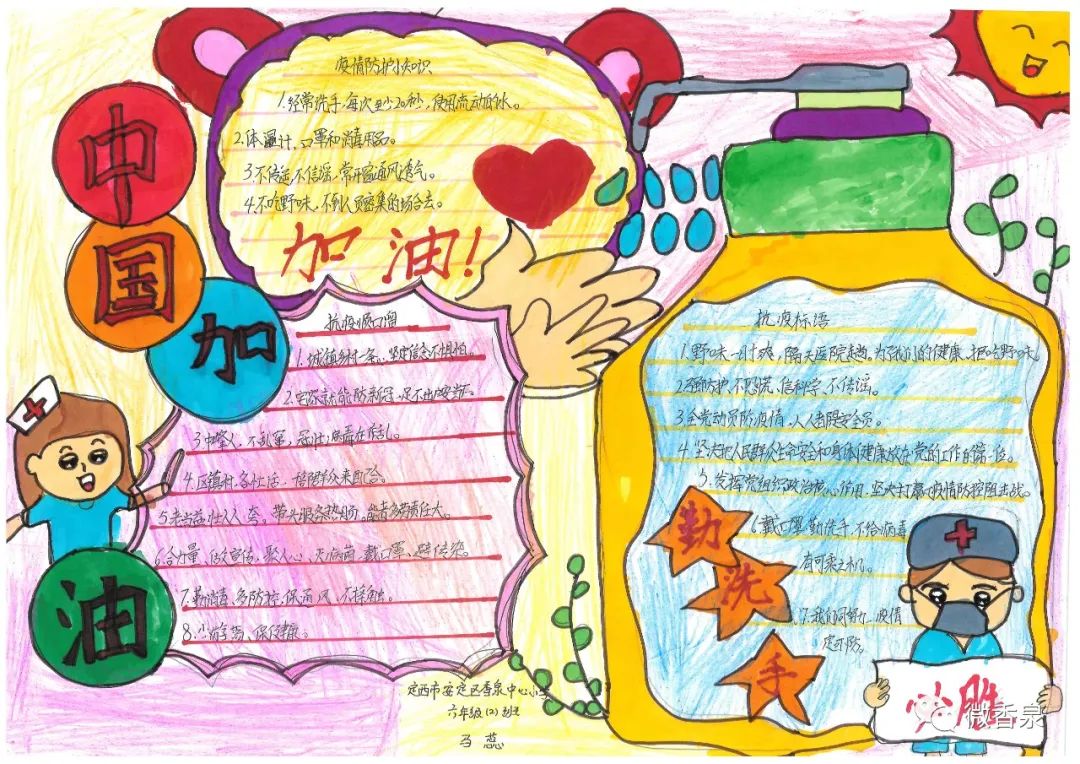 中
国
加
油
疫情防护小知识
1.经常洗手,每次至少20秒,使用流动的水。
2.体温计,口罩和消毒用品。
3.不传谣,不信谣,常开窗通风透气。
4.不吃野味,不到人员密集的场合去。
加油!
抗疫顺口溜
1.城镇乡村一条心,坚定信念不惧怕。
3.中华人,不乱窜,
4.区镇村,
5.老当益壮人人夸,带头服务热心肠,能者多劳责任大。
6.
做宣传,聚人心,灭病菌,戴口罩,避传染。
7.勤消毒,多防控,保通风,不接触。
8.
保健康。
抗疫标语
1.野味一时爽,隔天医院走趟。为了我们的健康,拒吃野味。
2.
防护,不恐慌,信科学,不传谣。
3.全党动员防疫情,人人
安全员。
4.坚决把人民群众生命安全和身体健康放在党的工作的第一位。
5.发挥党组织政治核心作用,坚决打赢疫情防控阻击战。
6.戴口罩,勤洗手,不给病毒
有可乘之机。
7.我们同努力,疫情
定可防。
勤
洗
手
必胜
定西市安定区香泉中心小学
六年级(2)班
马蕊
微香泉